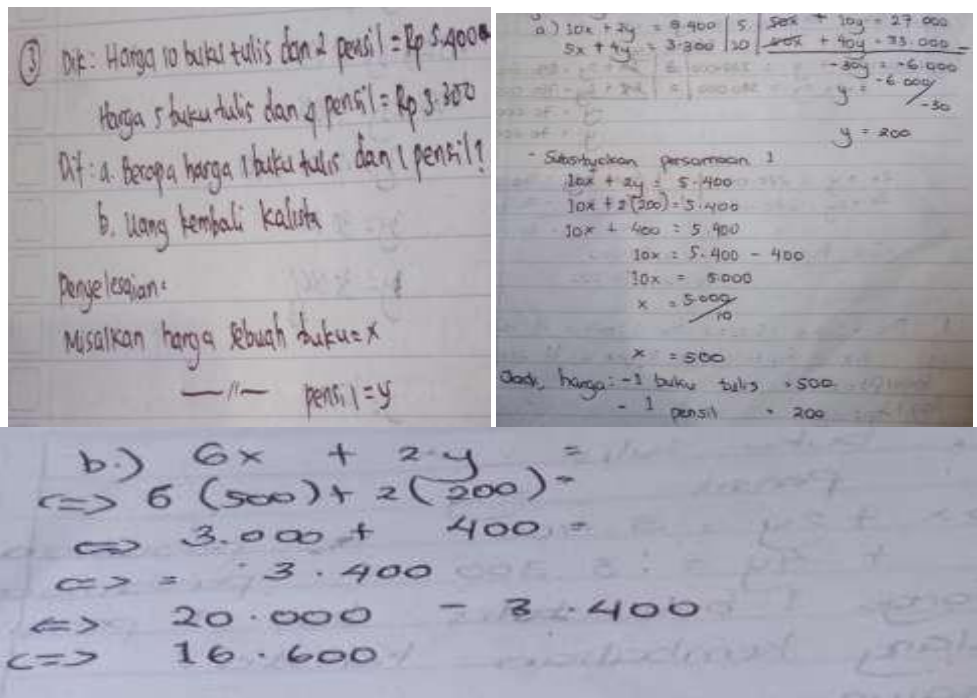 ③ Dik : Harga 10 buku tulis dan 2 pensil = Rp 5.400
Harga 5 buku tulis dan 4 pensil = Rp 3.300
Dit : a. Berapa harga 1 buku tulis dan 1 pensil?
b. Uang kembali Kalista
Penyelesaian:
Misalkan harga sebuah buku = x
—〃— pensil = y
a.) 10x + 2y = 5.400 | 5 | 50x + 10y = 27.000
5x + 4y = 3.300 | 10 | 50x + 40y = 33.000 -
-30y = -6.000
y = -6.000/-30
y = 200
- Substitusikan persamaan 1
10x + 2y = 5.400
10x + 2(200) = 5.400
10x + 400 = 5.400
10x = 5.400 - 400
10x = 5.000
x = 5.000/10
x = 500
Jadi, harga : - 1 buku tulis = 500
- 1 pensil = 200
b.) 6x + 2.y =
<=> 6 (500) + 2(200) =
<=> 3.000 + 400 =
<=> = 3.400
<=> 20.000 - 3.400
<=> 16.600